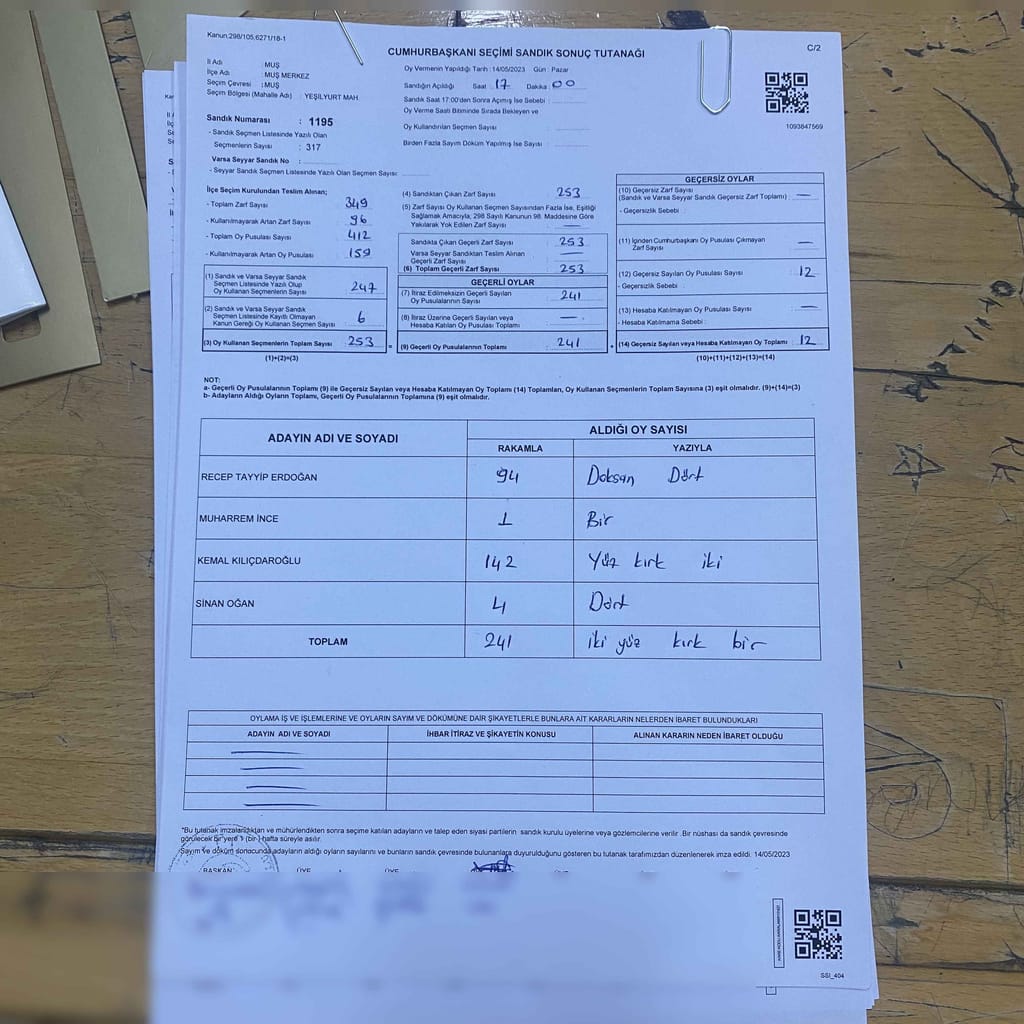 Kanun:298/105,6271/18-1
CUMHURBAŞKANI SEÇİMİ SANDIK SONUÇ TUTANAĞI
C/2
İl Adı : MUŞ
İlçe Adı : MUŞ MERKEZ
Seçim Çevresi : MUŞ
Seçim Bölgesi (Mahalle Adı) : YEŞİLYURT MAH.
Sandık Numarası : 1195
- Sandık Seçmen Listesinde Yazılı Olan
Seçmenlerin Sayısı : 317
Varsa Seyyar Sandık No :
- Seyyar Sandık Seçmen Listesinde Yazılı Olan Seçmen Sayısı:
Oy Vermenin Yapıldığı Tarih : 14/05/2023 Gün : Pazar
Sandığın Açıldığı Saat 17 Dakika 00
Sandık Saat 17.00'den Sonra Açılmış İse Sebebi :
Oy Verme Saati Bitiminde Sırada Bekleyen ve
Oy Kullandırılan Seçmen Sayısı :
Birden Fazla Sayım Döküm Yapılmış İse Sayısı :
1093847569
İlçe Seçim Kurulundan Teslim Alınan;
- Toplam Zarf Sayısı 349
- Kullanılmayarak Artan Zarf Sayısı 96
- Toplam Oy Pusulası Sayısı 412
- Kullanılmayarak Artan Oy Pusulası 159
(1) Sandık ve Varsa Seyyar Sandık
Seçmen Listesinde Yazılı Olup
Oy Kullanan Seçmenlerin Sayısı 247
(2) Sandık ve Varsa Seyyar Sandık
Seçmen Listesinde Kayıtlı Olmayan
Kanun Gereği Oy Kullanan Seçmen Sayısı 6
(3) Oy Kullanan Seçmenlerin Toplam Sayısı 253 =
(1)+(2)=(3)
(4) Sandıktan Çıkan Zarf Sayısı 253
(5) Zarf Sayısı Oy Kullanan Seçmen Sayısından Fazla İse, Eşitliği
Sağlamak Amacıyla; 298 Sayılı Kanunun 98. Maddesine Göre
Yakılarak Yok Edilen Zarf Sayısı —
Sandıkta Çıkan Geçerli Zarf Sayısı 253
Varsa Seyyar Sandıktan Teslim Alınan
Geçerli Zarf Sayısı —
(6) Toplam Geçerli Zarf Sayısı 253
GEÇERLİ OYLAR
(7) İtiraz Edilmeksizin Geçerli Sayılan
Oy Pusulalarının Sayısı 241
(8) İtiraz Üzerine Geçerli Sayılan veya
Hesaba Katılan Oy Pusulası Toplamı —
(9) Geçerli Oy Pusulalarının Toplamı 241 +
GEÇERSİZ OYLAR
(10) Geçersiz Zarf Sayısı
(Sandık ve Varsa Seyyar Sandık Geçersiz Zarf Toplamı) —
- Geçersizlik Sebebi :
(11) İçinden Cumhurbaşkanı Oy Pusulası Çıkmayan
Zarf Sayısı —
(12) Geçersiz Sayılan Oy Pusulası Sayısı 12
- Geçersizlik Sebebi :
(13) Hesaba Katılmayan Oy Pusulası Sayısı —
- Hesaba Katılmama Sebebi :
(14) Geçersiz Sayılan veya Hesaba Katılmayan Oy Toplamı 12
(10)+(11)+(12)+(13)=(14)
NOT:
a- Geçerli Oy Pusulalarının Toplamı (9) ile Geçersiz Sayılan veya Hesaba Katılmayan Oy Toplamı (14) Toplamları, Oy Kullanan Seçmenlerin Toplam Sayısına (3) eşit olmalıdır. (9)+(14)=(3)
b- Adayların Aldığı Oyların Toplamı, Geçerli Oy Pusulalarının Toplamına (9) eşit olmalıdır.
ADAYIN ADI VE SOYADI
ALDIĞI OY SAYISI
RAKAMLA YAZIYLA
RECEP TAYYİP ERDOĞAN 94 Doksan Dört
MUHARREM İNCE 1 Bir
KEMAL KILIÇDAROĞLU 142 Yüz kırk iki
SİNAN OĞAN 4 Dört
TOPLAM 241 iki yüz kırk bir
OYLAMA İŞ VE İŞLEMLERİNE VE OYLARIN SAYIM VE DÖKÜMÜNE DAİR ŞİKAYETLERLE BUNLARA AİT KARARLARIN NELERDEN İBARET BULUNDUKLARI
ADAYIN ADI VE SOYADI İHBAR İTİRAZ VE ŞİKAYETİN KONUSU ALINAN KARARIN NEDEN İBARET OLDUĞU
*Bu tutanak imzalandıktan ve mühürlendikten sonra seçime katılan adayların ve talep eden siyasi partilerin sandık kurulu üyelerine veya gözlemcilerine verilir. Bir nüshası da sandık çevresinde
görülecek bir yere 1 (bir) hafta süreyle asılır.
Sayım ve döküm sonucunda adayların aldığı oyların sayılarını ve bunların sandık çevresinde bulunanlara duyurulduğunu gösteren bu tutanak tarafımızdan düzenlenerek imza edildi. 14/05/2023
BAŞKAN ÜYE ÜYE
SSI_404